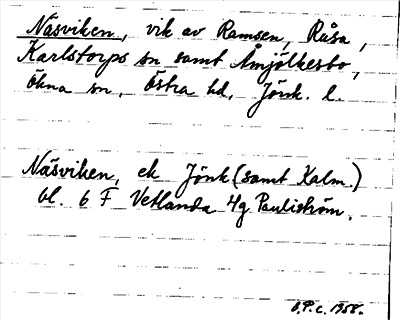 Näsviken, vik av Ramsen, Råsa,
Karlstorps sn samt Åmjölkesbo,
Ökna sn, Östra hd, Jönk. l.
Näsviken, ek Jönk (samt Kalm.)
bl. 6 F Vetlanda 4g Pauliström.
O.P.c. 1958.